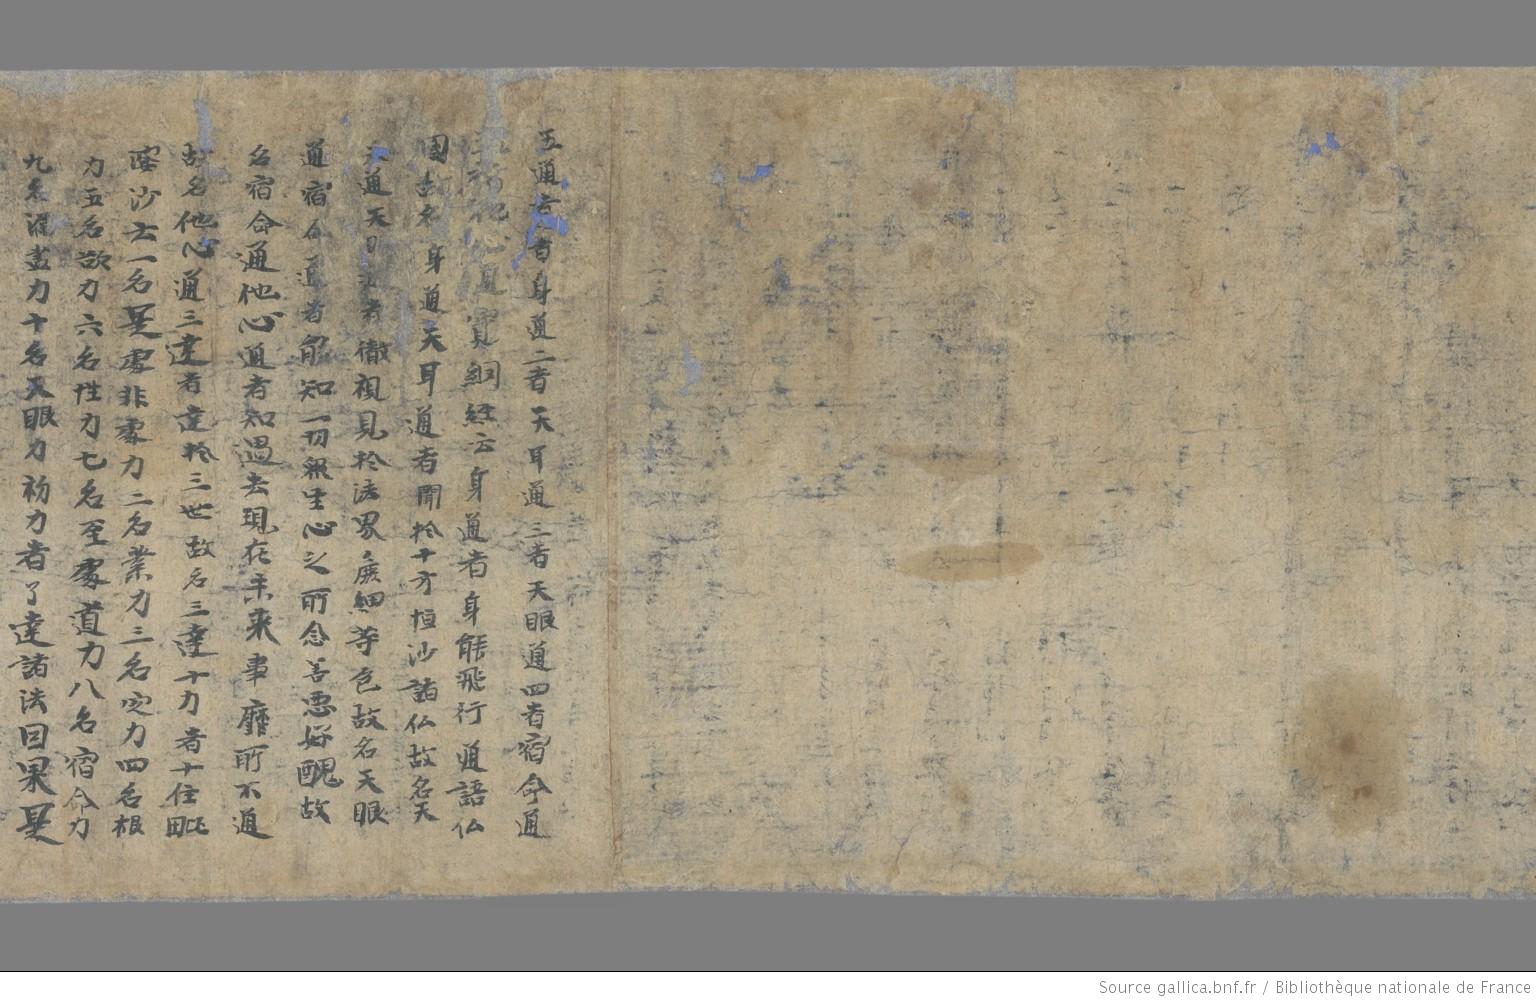 五通者一者身通二者天耳通三者天眼通四者宿命通
五者他心通寶網經云身通者身能飛行通語仏
國故名身通天耳通者聞於十方恒沙諸仏故名天
天眼通者徹視見於法界麁細等色故名天眼
通宿命通者能知一切衆生心之所念善惡好醜故
名宿命通他心通者知過去現在未來事靡所不通
故名他心通三達者達於三世故名三達十力者十住毗
婆沙云一名是處非處力二名業力三名定力四名根
力五名欲力六名性力七名至處道力八名宿命力
九名漏盡力十名天眼力初力者了達諸法因果是
Source gallica.bnf.fr / Bibliothèque nationale de France